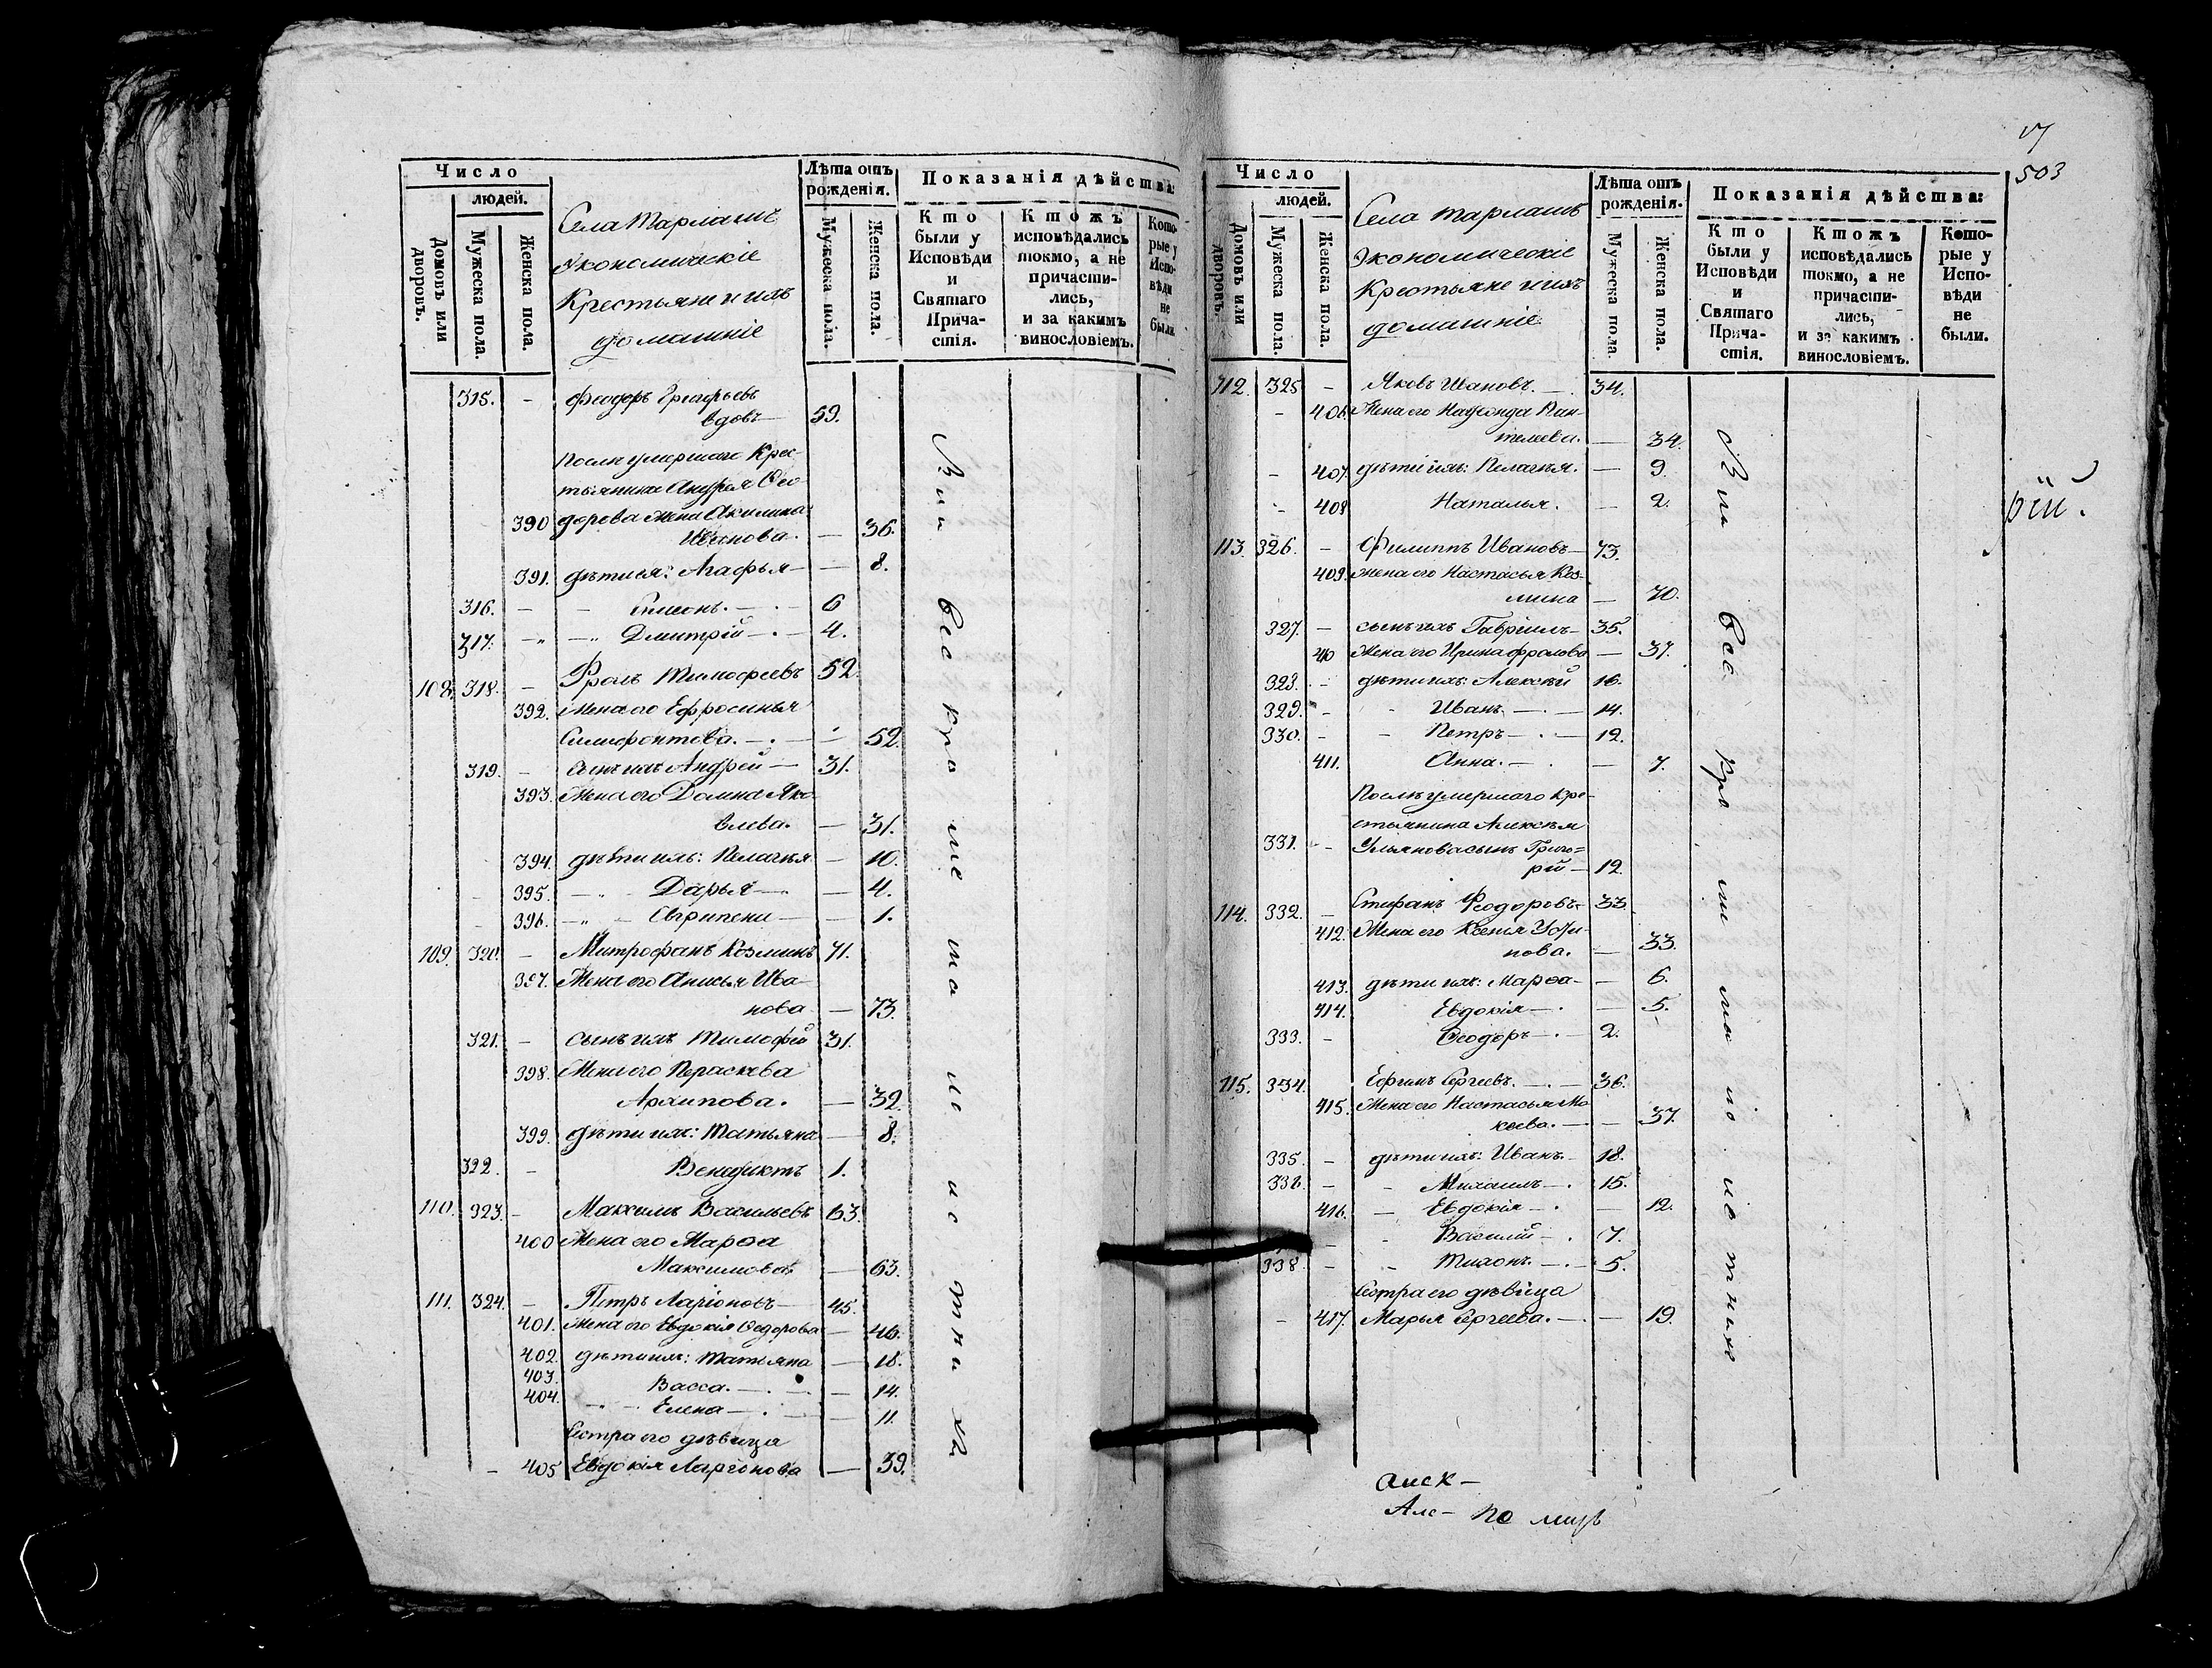 Число
людей.
Домовъ или дворовъ.
Мужеска пола.
Женска пола.
Села Тарлашъ
Экономическіе
Крестьяне и ихъ
домашніе
Лѣта отъ рожденія.
Мужеска пола.
Женска пола.
Показанія дѣйства:
Кто были у Исповѣди и Святаго Причастія.
Ктожъ исповѣдались токмо, а не причастились, и за какимъ винословіемъ.
Которые у Исповѣди не были.
315. - Феодоръ Григорьевъ
вдовъ — 59.
Послѣ умершаго Крес-
тьянина Андрея Ѳео-
390 дорова жена Акилина
Иванова. — 36.
391. дѣти ея: Агафья — — 8.
316. - - Симеонъ. — 6
317. - - Дмитрій — 4.
108. 318. - Фролъ Тимофеевъ 52.
392. Жена его Ефросинья
— 52.
319. - сынъ ихъ Андрей — 31.
393. Жена его Домна Яко-
влева. — 31.
394. дѣти ихъ: Пелагѣя — 10.
395. - Дарья — — 4.
396. - Агрипена — — 1.
109. 320. - Митрофанъ Козминъ 71.
397. Жена его Анисья Ива-
нова — 73.
321. - сынъ ихъ Тимофей 31.
398. Жена его Параскева
Архипова. — 32.
399. дѣти ихъ: Татьяна — 8.
322. - Венедиктъ 1.
110. 323. - Максимъ Васильевъ 63.
400 Жена его Марѳа
Максимова — 63.
111. 324. - Петръ Ларіоновъ — 45.
401. Жена его Евдокія Ѳедорова — 46.
402. дѣти ихъ: Татьяна — 18.
403. Васса. — — 14.
404. Елена — — 11.
Сестра его дѣвица
- 405 Евдокія Ларіонова — 39.
17
503
Число
людей.
Домовъ или дворовъ.
Мужеска пола.
Женска пола.
Села Тарлашъ
Экономическіе
Крестьяне и ихъ
домашніе
Лѣта отъ рожденія.
Мужеска пола.
Женска пола.
Показанія дѣйства:
Кто были у Исповѣди и Святаго Причастія.
Ктожъ исповѣдались токмо, а не причастились, и за какимъ винословіемъ.
Которые у Исповѣди не были.
112. 325 - Яковъ Ивановъ. — 34.
- 406. Жена его Надежда Пан-
телеева. — 34.
- 407. дѣти ихъ: Пелагѣя. — 9.
- 408 Наталья. — 2.
рій.
113. 326. - Филиппъ Ивановъ — 73.
409. Жена его Настасья Коз-
мина — 70.
327. - сынъ ихъ Гавріилъ — 35.
410 Жена его Ирина Фролова — 37.
328. - дѣти ихъ: Алексѣй 16.
329. - - Иванъ. — 14.
330. - - Петръ — 12.
411. Анна. — — 7.
Послѣ умершаго Кре-
стьянина Алексѣя
331. - Ульянова сынъ Григо-
рій — 12.
114. 332. - Стефанъ Ѳеодоровъ — 33.
412. Жена его Ксенія
нова. — 33.
413. дѣти ихъ: Марѳа — — 6.
414. Евдокія — — 5.
333. - Ѳеодоръ — 2.
115. 334. Ефимъ Сергеевъ. — 36.
415. Жена его Настасья Мо-
кеева. — — 37.
335. - дѣти ихъ: Иванъ — 18.
336. - - Михаилъ — 15.
416. - Евдокія — — 12.
- - Василій — 7.
338. - - Тихонъ. — 5.
Сестра его дѣвица
- 417. Марья Сергеева. — — 19.
Але-